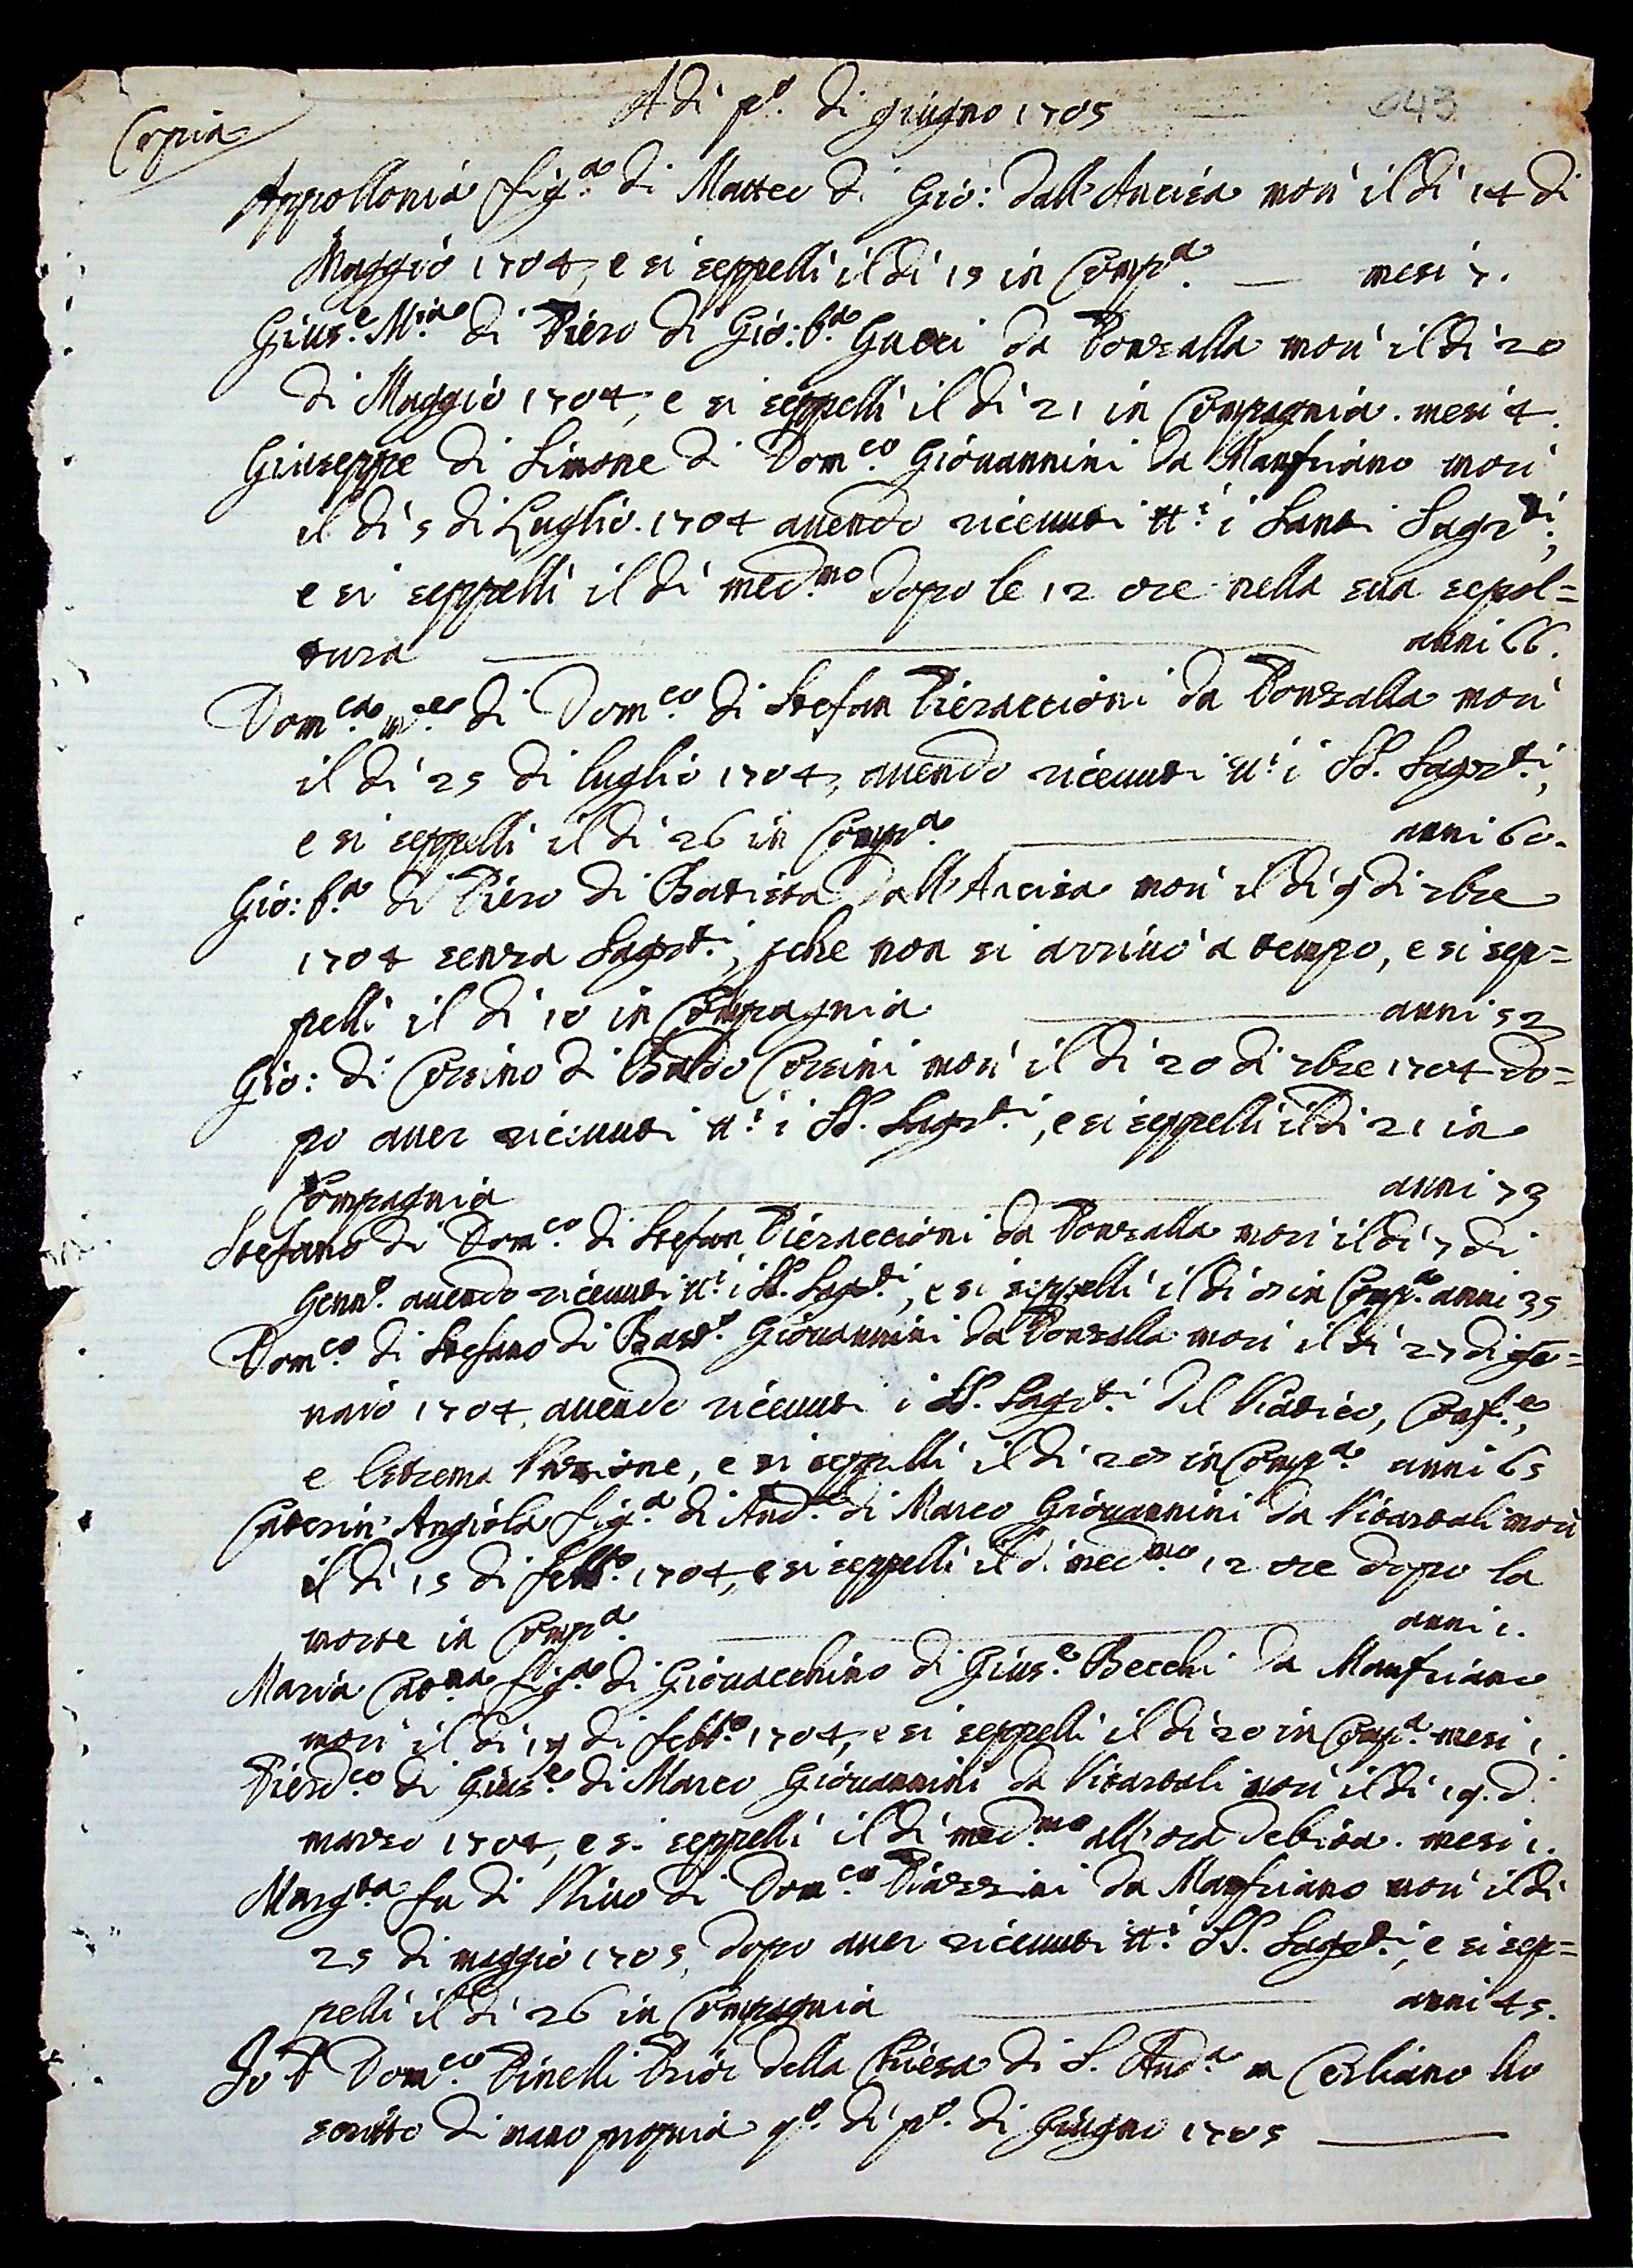 Adi p.º di giugno 1705
043
Copia
Appollonia fig.ª di Matteo di Gio: dall'Ancisa morì il dì 14 di
Maggio 1704, e si seppellì il dì 15 in Comp.ª — mesi 7.
Gius.e M.ia di Piero di Gio: b.ª Gucci da Ponzalla morì il dì 20
di Maggio 1704, e si seppellì il dì 21 in Compagnia. mesi 4.
Giuseppe di Simone di Dom.co Giouannini da Manfriano morì
il dì 5 di Luglio 1704 auendo riceuuti tt.i i Santi Sagr.ti,
e si seppellì il dì med.mo dopo le 12 ore nella sua sepol=
tura — anni 66.
Dom.ca di Dom.co di Stefan Pieraccioni da Ponzalla morì
il dì 25 di luglio 1704, auendo riceuuti tt.i i SS. Sagr.ti,
e si seppellì il dì 26 in Comp.ª — anni 60.
Gio: b.ª di Piero di Batista dall'Ancisa morì il dì 9 di 7bre
1704 senza Sagr.ti, pche non si arriuò a tempo, e si sep=
pellì il dì 10 in Compagnia — anni 52
Gio: di Corsino di Baldo Corsini morì il dì 20 di 7bre 1704 do=
po auer riceuuti tt.i i SS. Sagr.ti, e si seppellì il dì 21 in
Compagnia — anni 73
Stefano di Dom.co di Stefan Pieraccioni da Ponzalla morì il dì 7 di
Genn.º auendo riceuuti tt.i i SS. Sagr.ti, e si seppellì il dì 8 in Comp.ª anni 35
Dom.co di Stefano di Bast.º Giouannini da Ponzalla morì il dì 27 di Ge=
naio 1704, auendo riceuuti i SS. Sagr.ti del Viatico, Conf.e,
e Estrema Unzione, e si seppellì il dì 28 in Comp.ª anni 65
Caterin'Angiola fig.ª di And.ª di Marco Giouannini da Vitartali morì
il dì 15 di febb.º 1704, e si seppellì il dì med.mo 12 ore dopo la
morte in Comp.ª — anni 1.
Maria Cat.na fig.ª di Giouacchino di Gius.e Becchi da Manfriano
morì il dì 19 di febb.º 1704, e si seppellì il dì 20 in Comp.ª mesi 1.
Pierd.co di Gius.e di Marco Giouannini da Vitartali morì il dì 19. di
marzo 1704, e si seppellì il dì med.mo all'ora debita. mesi 1.
Marg.ta fu di Nino di Dom.co Piazzini da Manfriano morì il dì
25 di maggio 1705, dopo auer riceuuti tt.i SS. Sagr.ti, e si sep=
pellì il dì 26 in Compagnia — anni 45.
Io P Dom.co Pinelli Prior della Chiesa di S. And.ª a Cerliano ho
scritto di mano propria q.º dì p.º di Giugno 1705 —